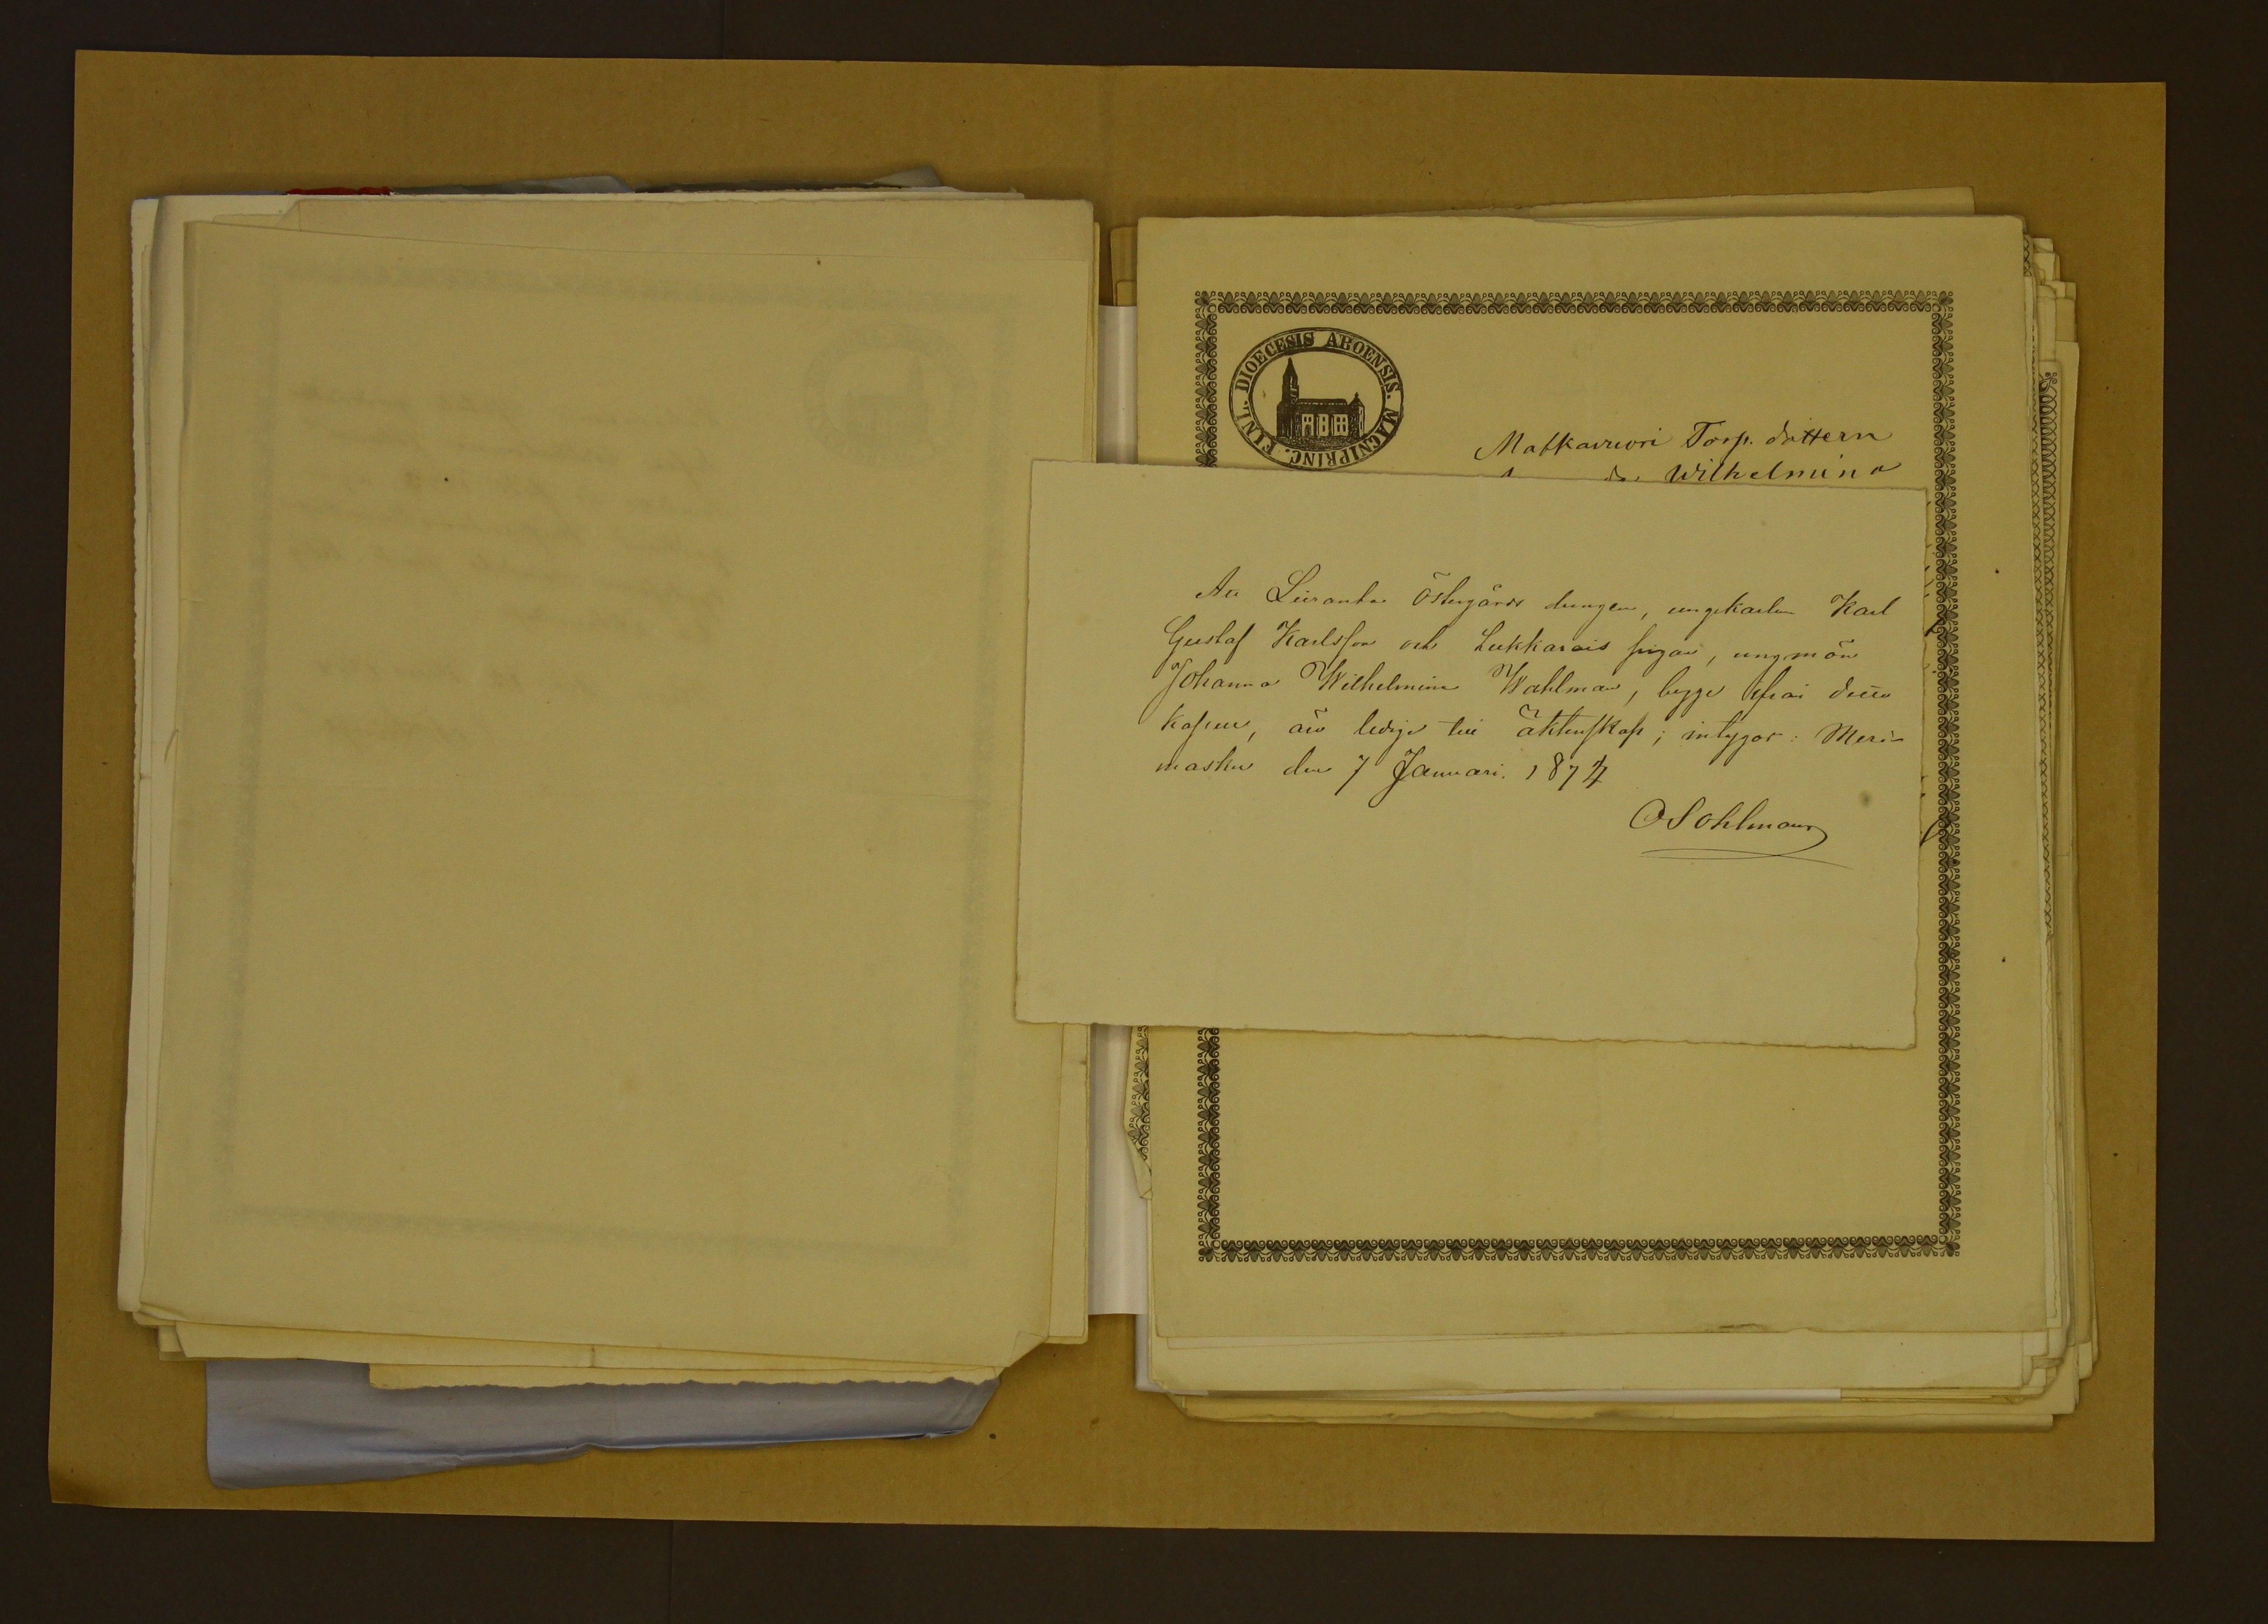 FINL. DIOECESIS ABOENSIS. MAGNIPRINC.
Matkavuori Torp. dottern
Wilhelmina
Att Liiranta Östergårds drengen, ungkarlen Karl
Gustaf Karlsson och Lukkarais pigan, ungmön
Johanna Wilhelmina Wahlman, begge från detta
kapell, äro lediga till äktenskap; intygar: Meri-
masku den 7 Januari. 1874
O Sohlman